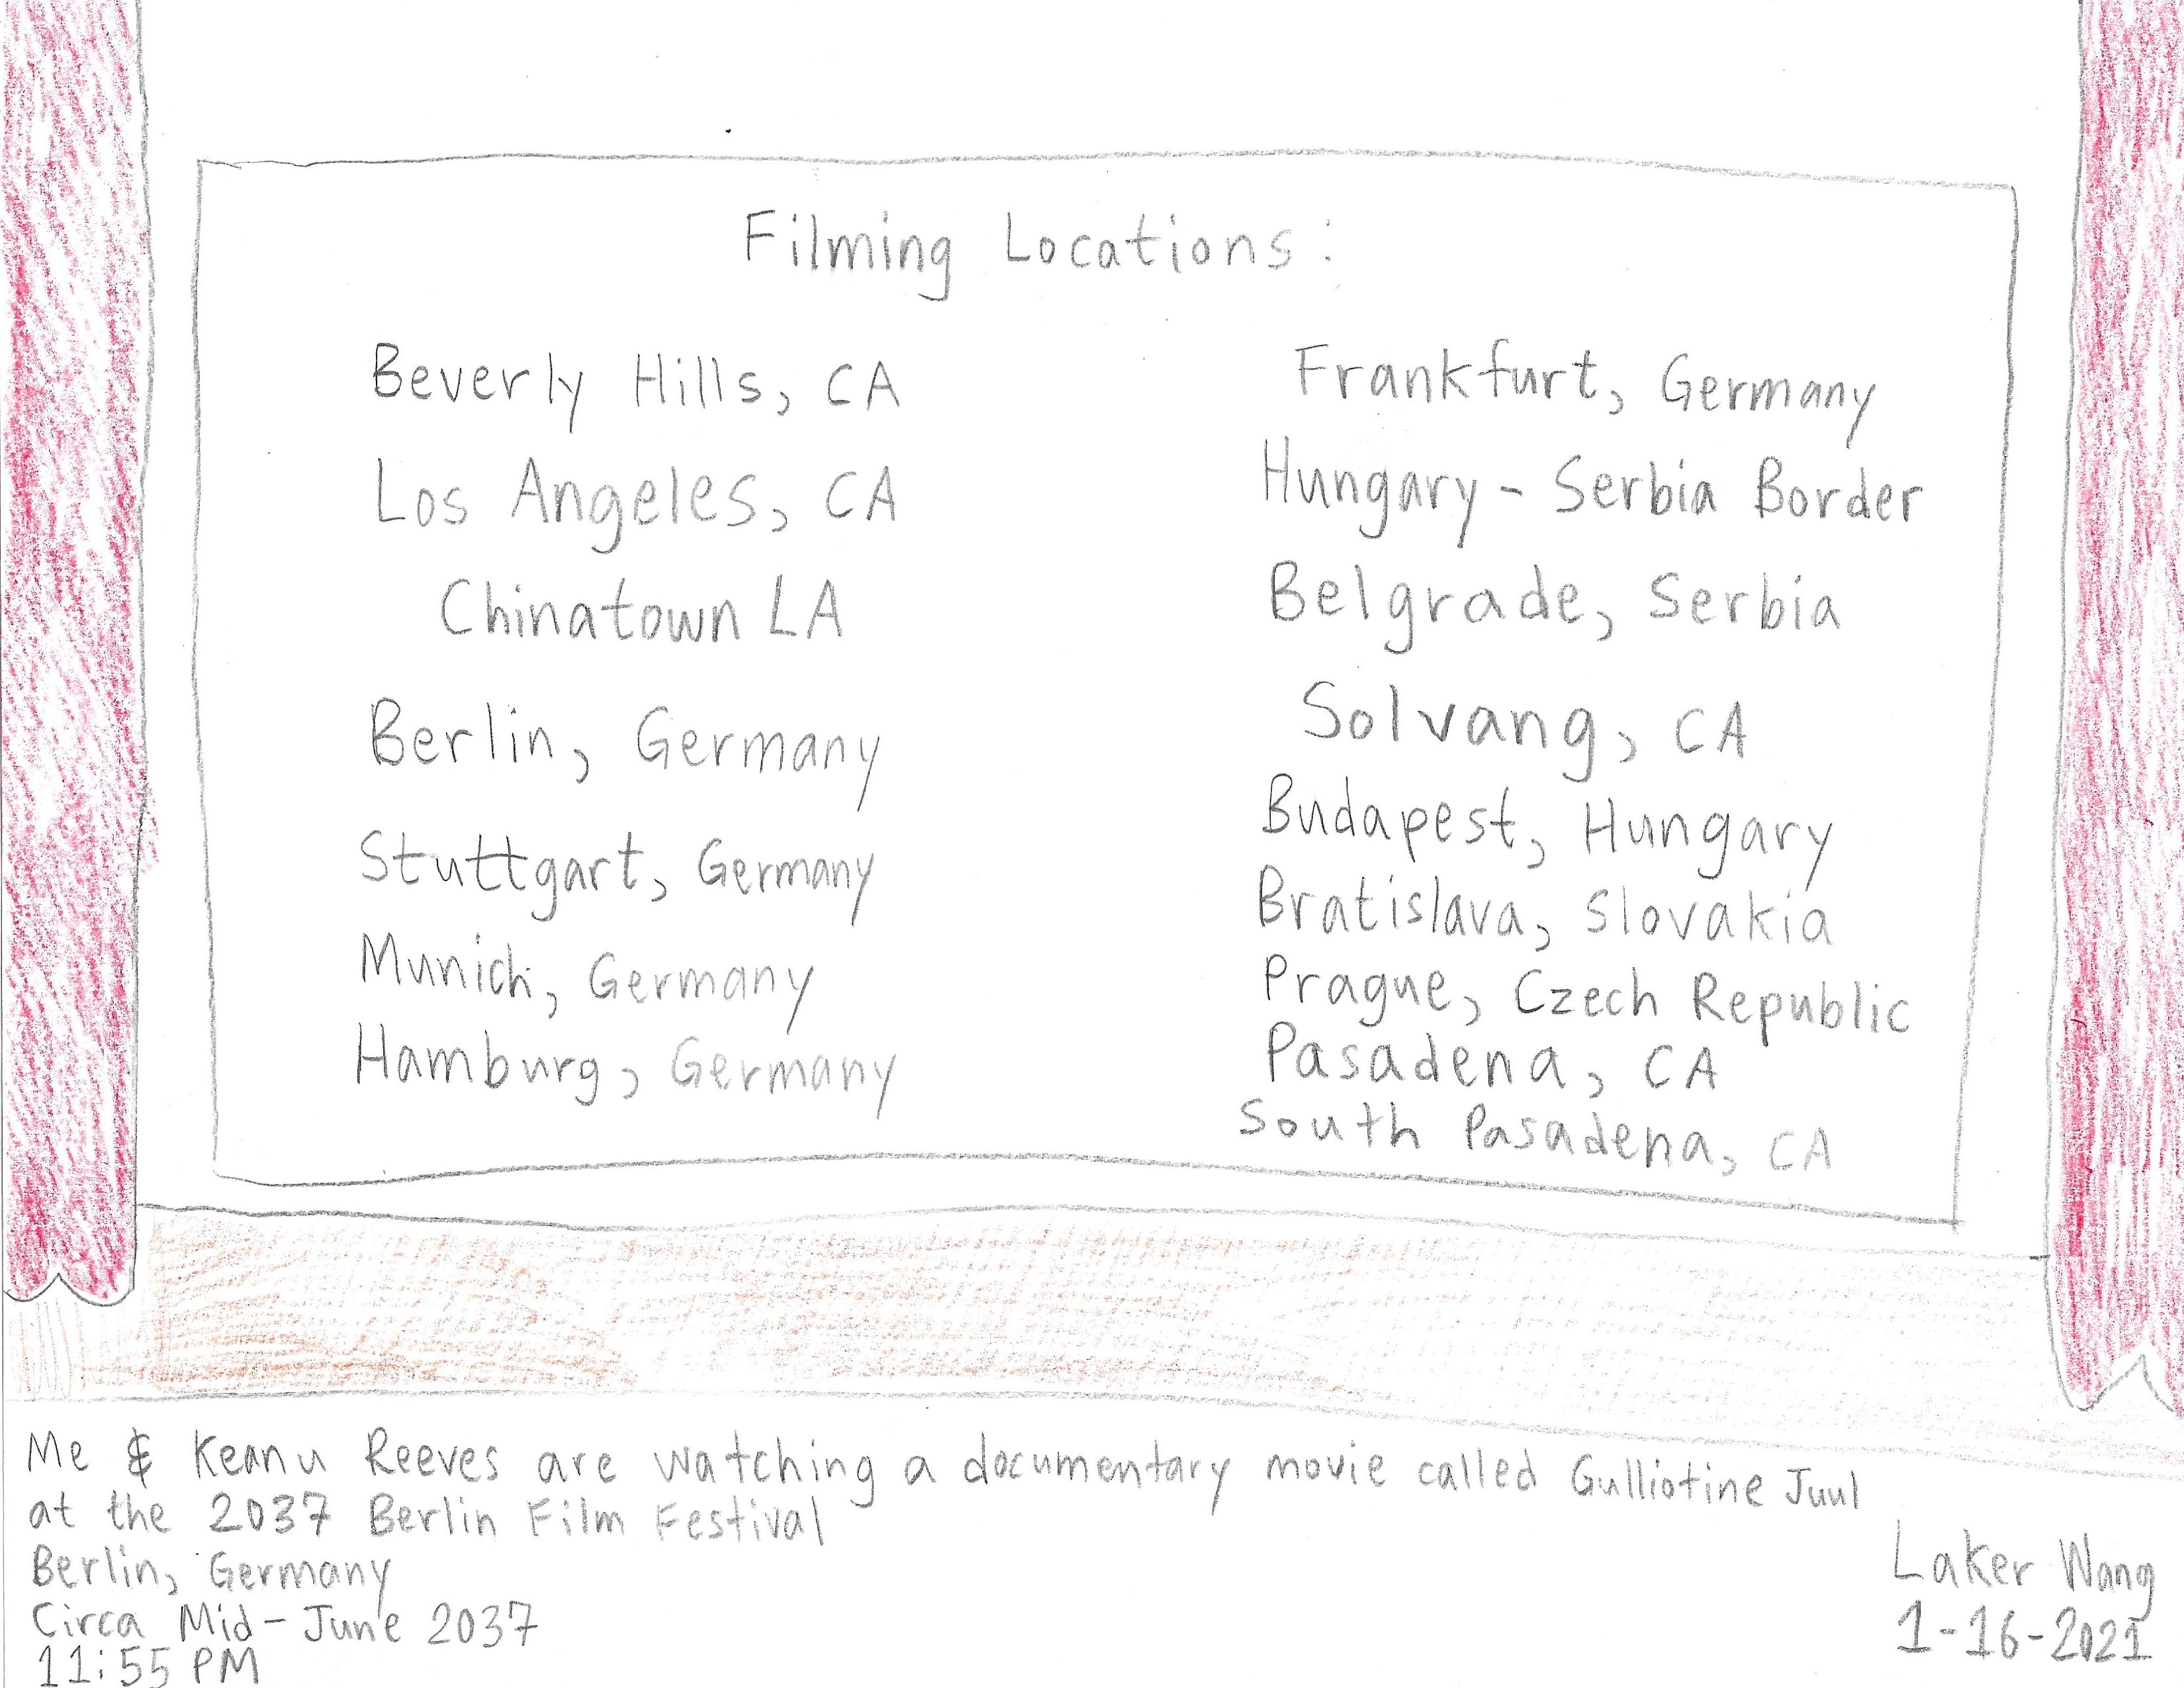 Filming Locations:
Beverly Hills, CA
Los Angeles, CA
Chinatown LA
Berlin, Germany
Stuttgart, Germany
Munich, Germany
Hamburg, Germany
Frankfurt, Germany
Hungary - Serbia Border
Belgrade, Serbia
Solvang, CA
Budapest, Hungary
Bratislava, Slovakia
Prague, Czech Republic
Pasadena, CA
South Pasadena, CA
Me & Keanu Reeves are watching a documentary movie called Gulliotine Juul
at the 2037 Berlin Film Festival
Berlin, Germany
Circa Mid-June 2037
11:55 PM
Laker Wang
1-16-2021